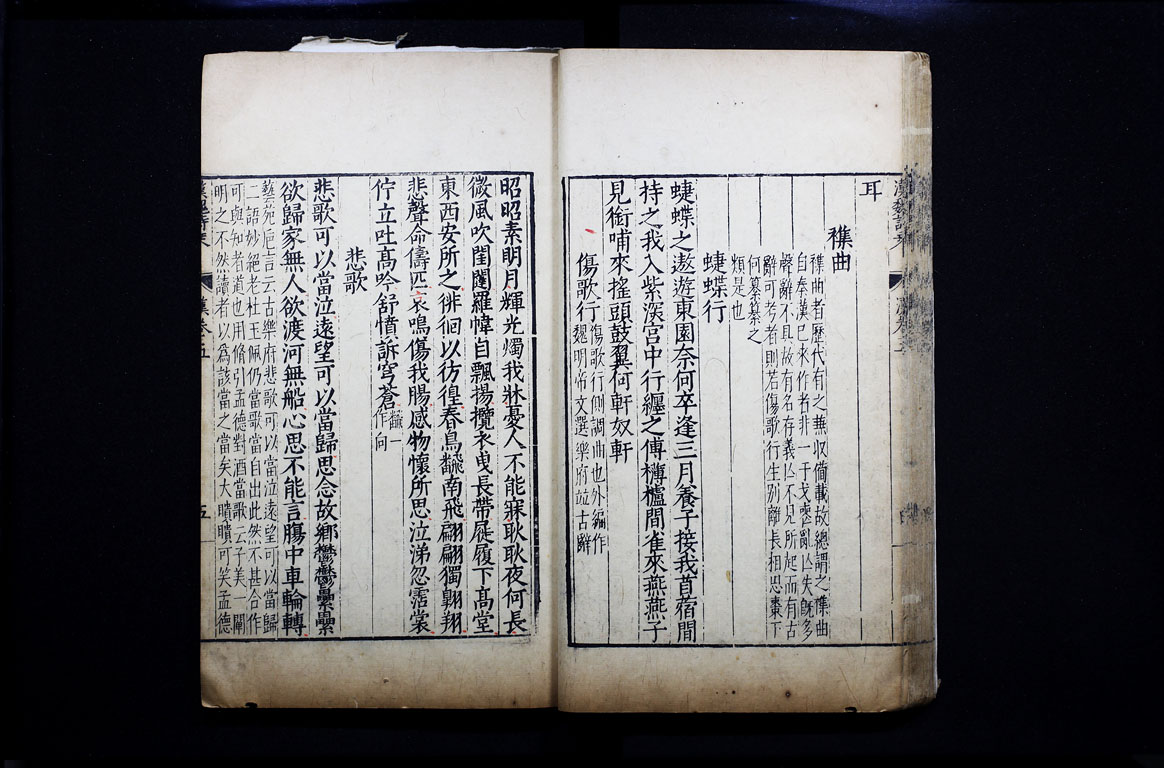 耳
襍曲
襍曲者歷代有之兼収備載故總謂之襍曲
自秦漢已來作者非一干戈喪亂亾失旣多
聲辭不具故有名存義亾不見所起而有古
辭可考者則若傷歌行生別離長相思棗下
何纂纂之
類是也
蜨蝶行
蜨蝶之遨遊東園奈何卒逢三月養子接我苜蓿間
持之我入紫深宮中行纏之傅欂櫨間雀來燕燕子
見銜哺來搖頭鼓翼何軒奴軒
傷歌行
傷歌行側調曲也外編作
魏明帝文選樂府竝古辭
昭昭素明月輝光燭我牀憂人不能寐耿耿夜何長
微風吹閨闥羅幃自飄揚攬衣曳長帶屣履下高堂
東西安所之徘徊以彷徨春鳥飜南飛翩翩獨翺翔
悲聲命儔匹哀鳴傷我膓感物懷所思泣涕忽霑裳
佇立吐高吟舒憤訴穹蒼
飜一
作向
悲歌
悲歌可以當泣遠望可以當歸思念故鄉鬱鬱纍纍
欲歸家無人欲渡河無船心思不能言膓中車輪轉
藝苑巵言云古樂府悲歌可以當泣遠望可以當歸
二語妙絕老杜玉佩仍當歌當自出此然不甚合作
可與知者道也用脩引孟德對酒當歌云子美一闡
明之不然讀者以爲該當之當矣大聵聵可笑孟德
漢卷五
五